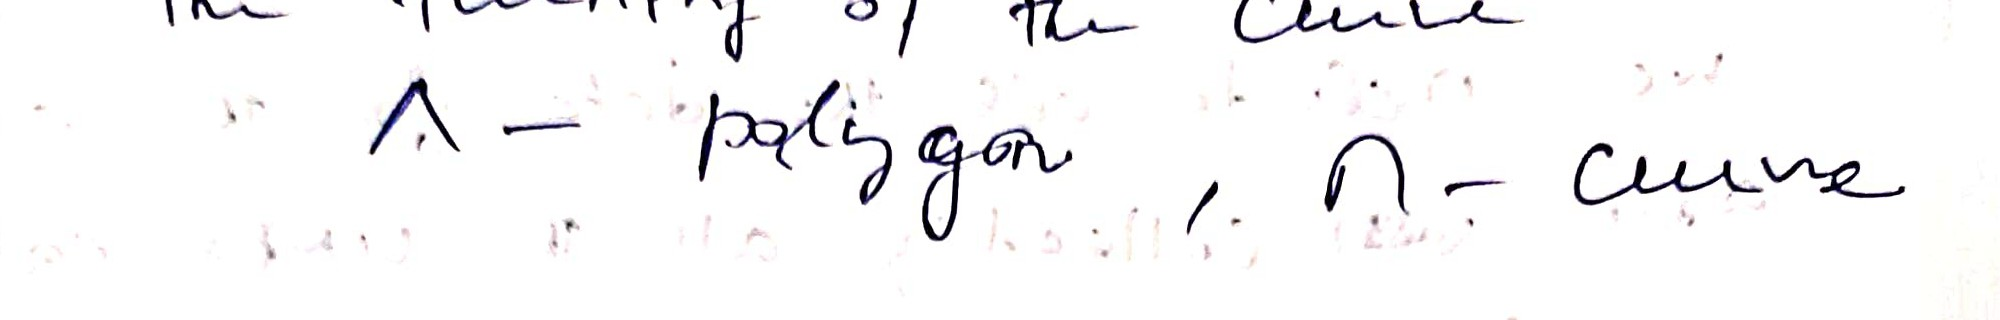 the of the curve
∧ – polygon, ∩ – curve